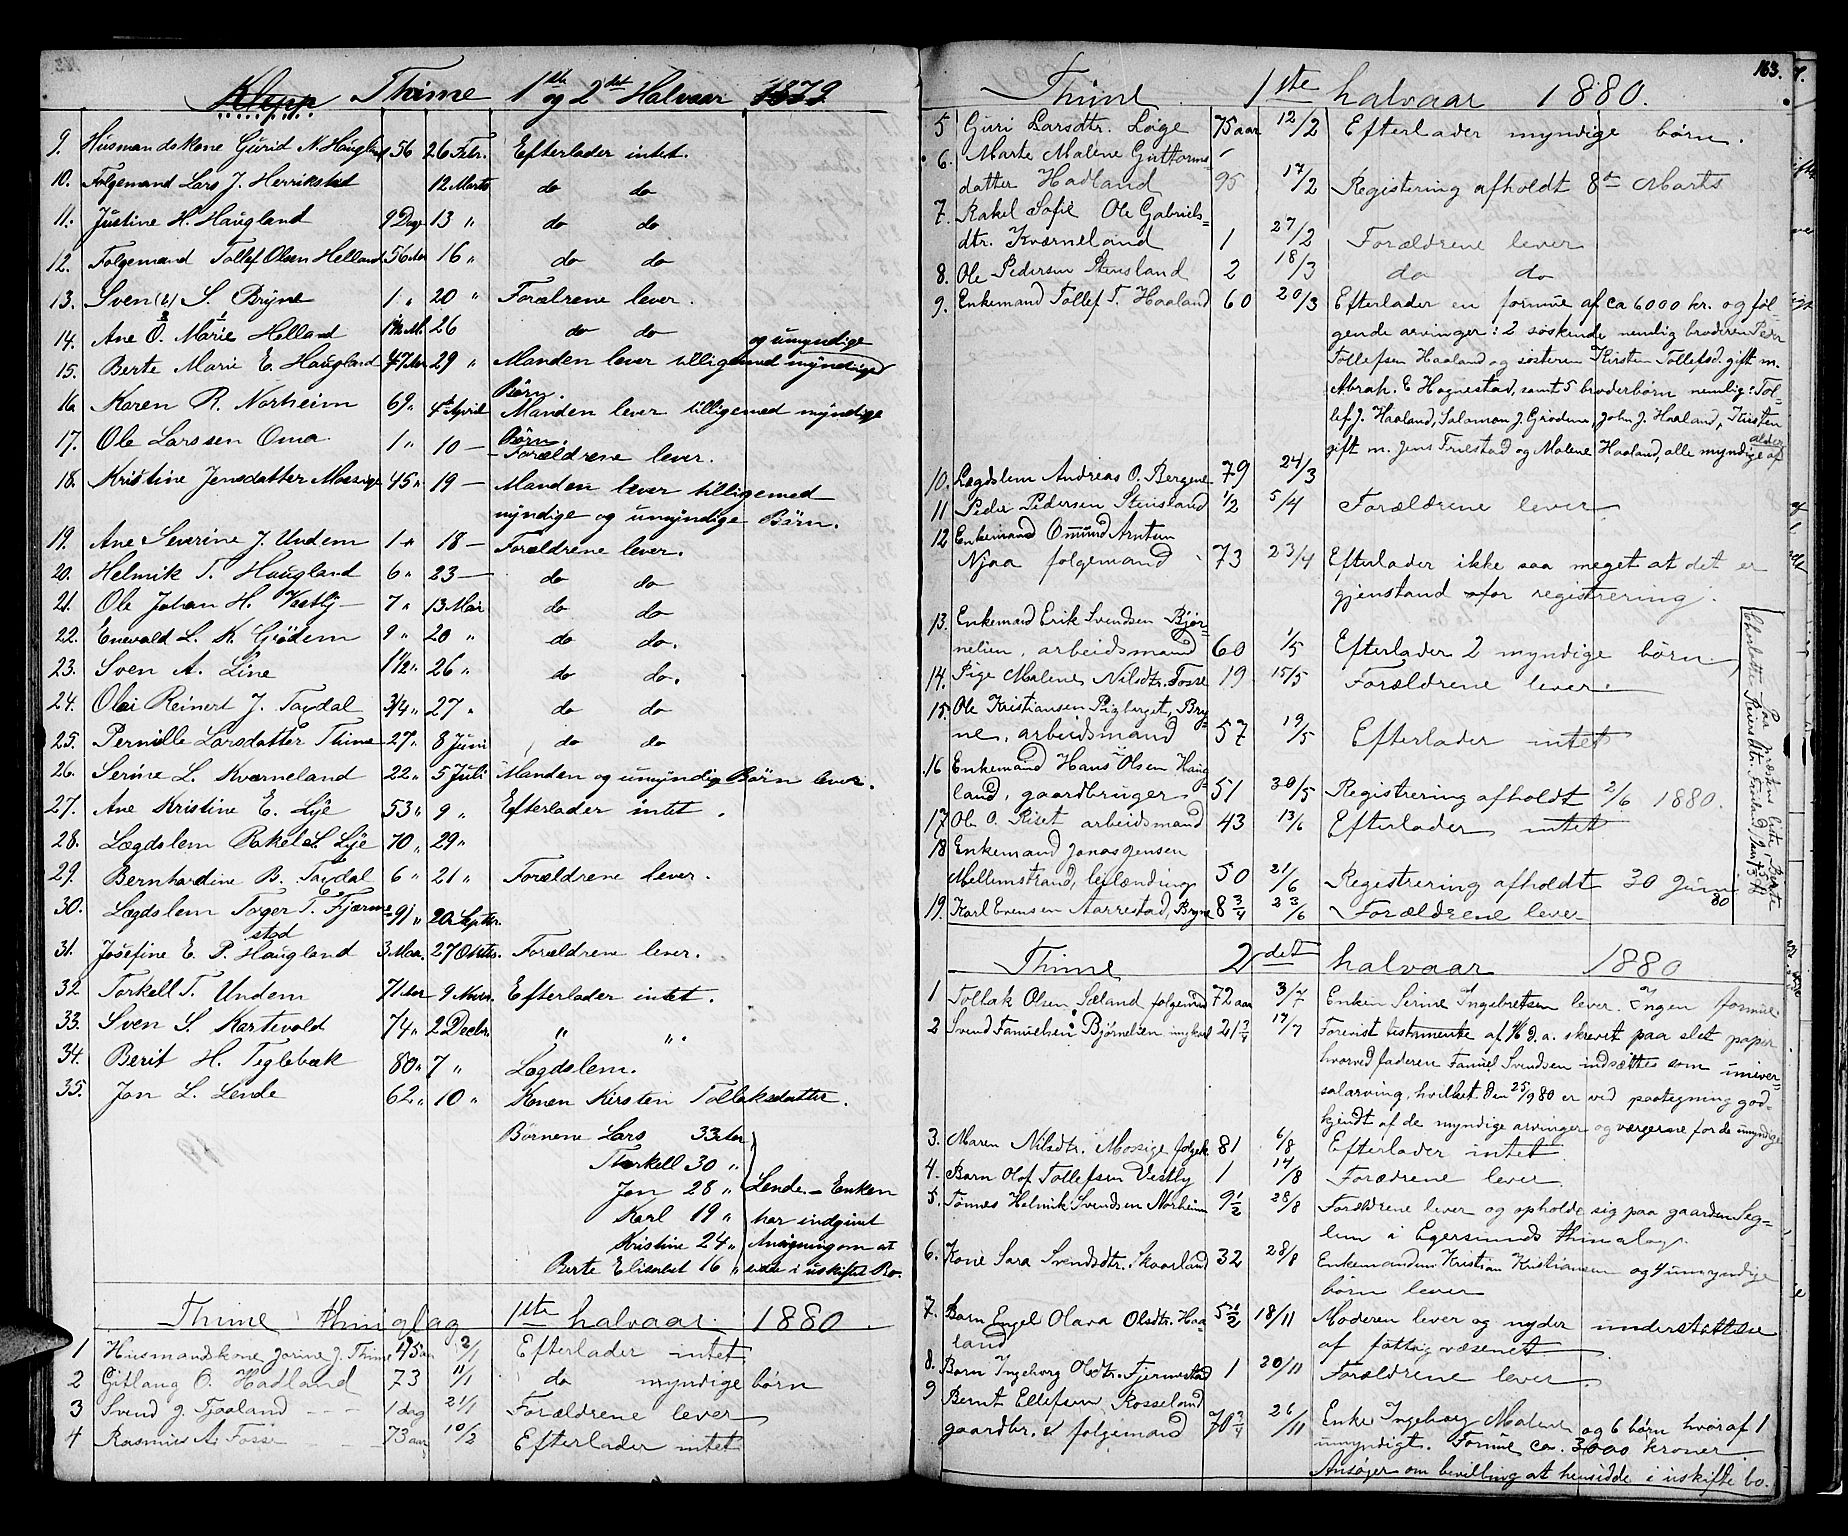 Klepp Thime 1ste og 2det Halvaar 1879
9. Husmandskone Gurid N. Haugland 56 26 Febr. Efterlader intet.
10. Folgemand Lars J. Herrikstad 12 Marts do do
11. Justine H. Haugland 9 Dage 13 " do do
12. Folgemand Tollef Olsen Helland 56 Aar 16 " do do
13. Sven (2) S. Bryne 1 " 20 " Forældrene lever.
14. Ane O. Marie Helland 26 do do
15. Berte Marie E. Haugland 47 Aar 29 " Manden lever tilligemed myndige og umyndige
Børn.
16. Karen R. Norheim 69 " 4de April Manden lever tilligemed myndige
Børn.
17. Ole Larssen Oma 1 " 10 — Forældrene lever.
18. Kristine Jensdatter Mossige 45 " 19 — Manden lever tilligemed
myndige og umyndige Børn.
19. Ane Severine J. Undem 1 " 18 — Forældrene lever.
20. Helmik T. Haugland 6 " 23 — do do
21. Ole Johan H. Vestly — 7 " 13 Mai do do
22. Enevald L. K. Grødem 9 " 20 " do do.
23. Sven A. Line 1 1/2 " 26 " do do.
24. Olai Reinert J. Taxdal 3/4 " 27 " do do
25. Pernille Larsdatter Thime 27 " 8 Juni do do
26. Serine L. Kværneland 22 " 5 Juli Manden og umyndig Børn lever.
27. Ane Kristine E. Lye 53 " 9 " Efterlader intet.
28. Lægdslem Rakel L. Lye 70 " 29 "
29. Bernhardine B. Taxdal 6 " 21 " Forældrene lever.
30. Lægdslem Torger T. Fjerme- 91 " 20 Septbr.
stad
31. Josefine E. P. Haugland 3 Maa. 27 Oktbr. Forældrene lever.
32 Torkell T. Undem 71 Aar 9 Novbr. Efterlader intet.
33. Sven S. Kartevold 74 " 2 Decbr. " " .
34. Berit H. Teglebæk 80 " 7 " Lægdslem.
35. Jon L. Lende 62 " 10 " Konen Kirsten Tollaksdatter.
Børnene Lars 33 Aar
Thorkell 30 "
Jon 28 " Lende. – Enken
Karl 19 " har indgivet
Kristine 24 " Ansøgning om at
Berte Elisabet 16 " sidde i uskiftet Bo.
Thime thinglag 1ste halvaar 1880
1 Husmandskone Jorine J. Thime 45 aar 2/1 Efterlader intet
2 Gitlaug O. Hadland 73 11/1 do myndige børn
3 Svend J. Tjaaland - - - 1 dag 21/1 Forældrene lever
4 Rasmus A. Fosse - - 73 aar 10/2 Efterlader intet
163.
Thime 1ste halvaar 1880.
5 Guri Larsdtr. Løge 75 aar 12/2 Efterlader myndige børn.
6. Marte Malene Guttorms-
datter Hadland 95 17/2 Registering afholdt 8de Marts
7. Rakel Sofie Ole Gabriels-
dtr. Kværneland 1 27/2 Forældrene lever
8. Ole Pedersen Stensland 2 18/3 do do
9. Enkemand Tollef T. Haaland 60 20/3 Efterlader en formue af ca 6000 kr. og føl-
gende arvinger: 2 søskende nemlig broderen Peder
Tollefsen Haaland og søsteren Kirsten Tollefsd. gift m.
Abrah. E Hognestad, samt 5 broderbørn nemlig: Tol-
lef J. Haaland, Salomon J. Grødem, John J. Haaland, Kirsten
gift m. Jens Friestad og Malene Haaland, alle myndige af alder
10. Lægdslem Andreas O. Bergene 79 24/3
11 Peder Pedersen Stensland 1/2 5/4 Forældrene lever
12 Enkemand Omund Arntsen
Njaa folgemand 73 23/4 Efterlader ikke saa meget at det er
gjenstand for registrering.
13. Enkemand Erik Svendsen Bjør-
nelien, arbeidsmand 60 1/5 Efterlader 2 myndige børn
14. Pige Malene Nilsdtr. Fosse 19 15/5 Forældrene lever.
15. Ole Kristiansen Pigberget, Bry-
ne, arbeidsmand 57 19/5 Efterlader intet
16 Enkemand Hans Olsen Haug-
land, gaardbruger 51 30/5 Registrering afholdt 2/6 1880.
17 Ole O. Riset arbeidsmand 43 13/6 Efterlader intet
18 Enkemand Jonas Jensen
Mellemstrand, leilænding 50 21/6 Registrering afholdt 30 Juni 80
19. Karl Evensen Aarrestad, Bryne 8 3/4 23/6 Forældrene lever
Paa præstens liste 5 Berte
Thime 2det halvaar 1880
1 Tollak Olsen Sæland folgemand 72 aar 3/7 Enken Serine Ingebretsen lever. Ingen formue
2 Svend Tanielsen Bjørnelien ungkarl 21 3/4 17/7 Forevist testimente af d.a. skrevet paa slet papir
hvorved faderen Taniel Svendsen indsættes som univer-
salarving, hvilket den 25/9 80 er ved paategning god-
kjendt af de myndige arvinger og værgerne for de umyndige
3. Maren Nilsdtr. Mossige folgek. 81 6/8 Efterlader intet.
4. Barn Olof Tollefsen Vestly 1 14/8 Forædrene lever.
5. Tønnes Helmik Svendsen Norheim 9 1/2 28/8 Forældrene lever og opholde sig paa gaarden Seg-
lem i Egersunds thinglag.
6. Kone Sara Svendsdtr. Skaarland 32 28/8 Enkemanden Kristian Kristiansen og 4 umyndige
børn lever
7. Barn Engel Olava Olsdtr. Haa-
land 5 1/2 18/11 Moderen lever og nyder understøttelse
af fattigvæsenet
8. Barn Ingeborg Olsdtr. Fjermestad 1 20/11 Forældrene lever.
9 Bernt Ellefsen Rosseland
gaardbr. & folgemand 70 3/4 26/11 Enke Ingeborg Malene og 6 børn hvoraf 1
umyndigt. Formue ca. 3000 kroner
Ansøger om bevilling at hensidde i uskifte bo.